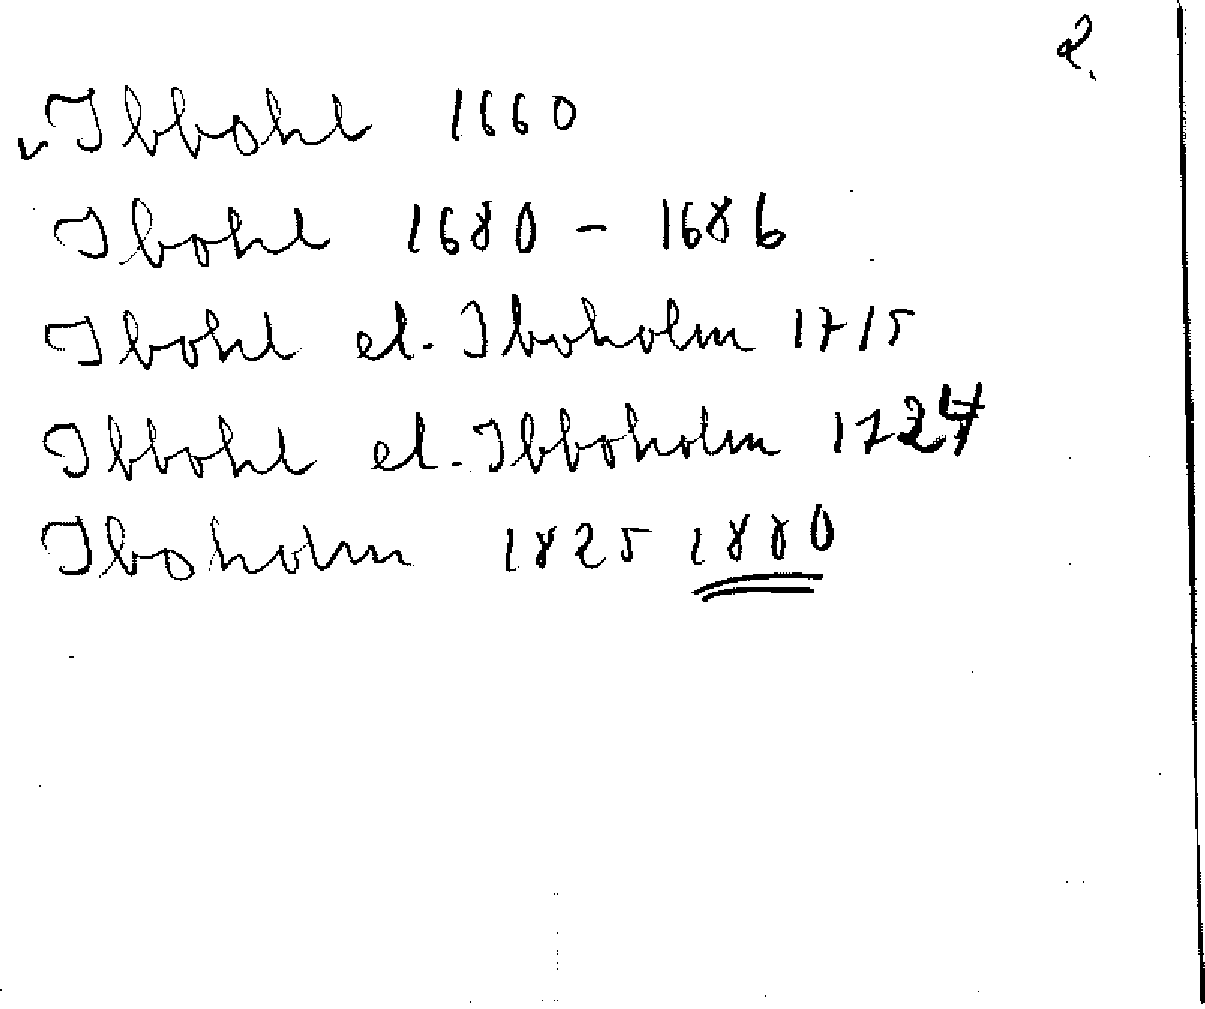 2.
Ibbohl 1660
Ibohl 1680 - 1686
Ibohl el. Iboholm 1715
Ibbohl el. Ibboholm 1724
Iboholm 1825 1880